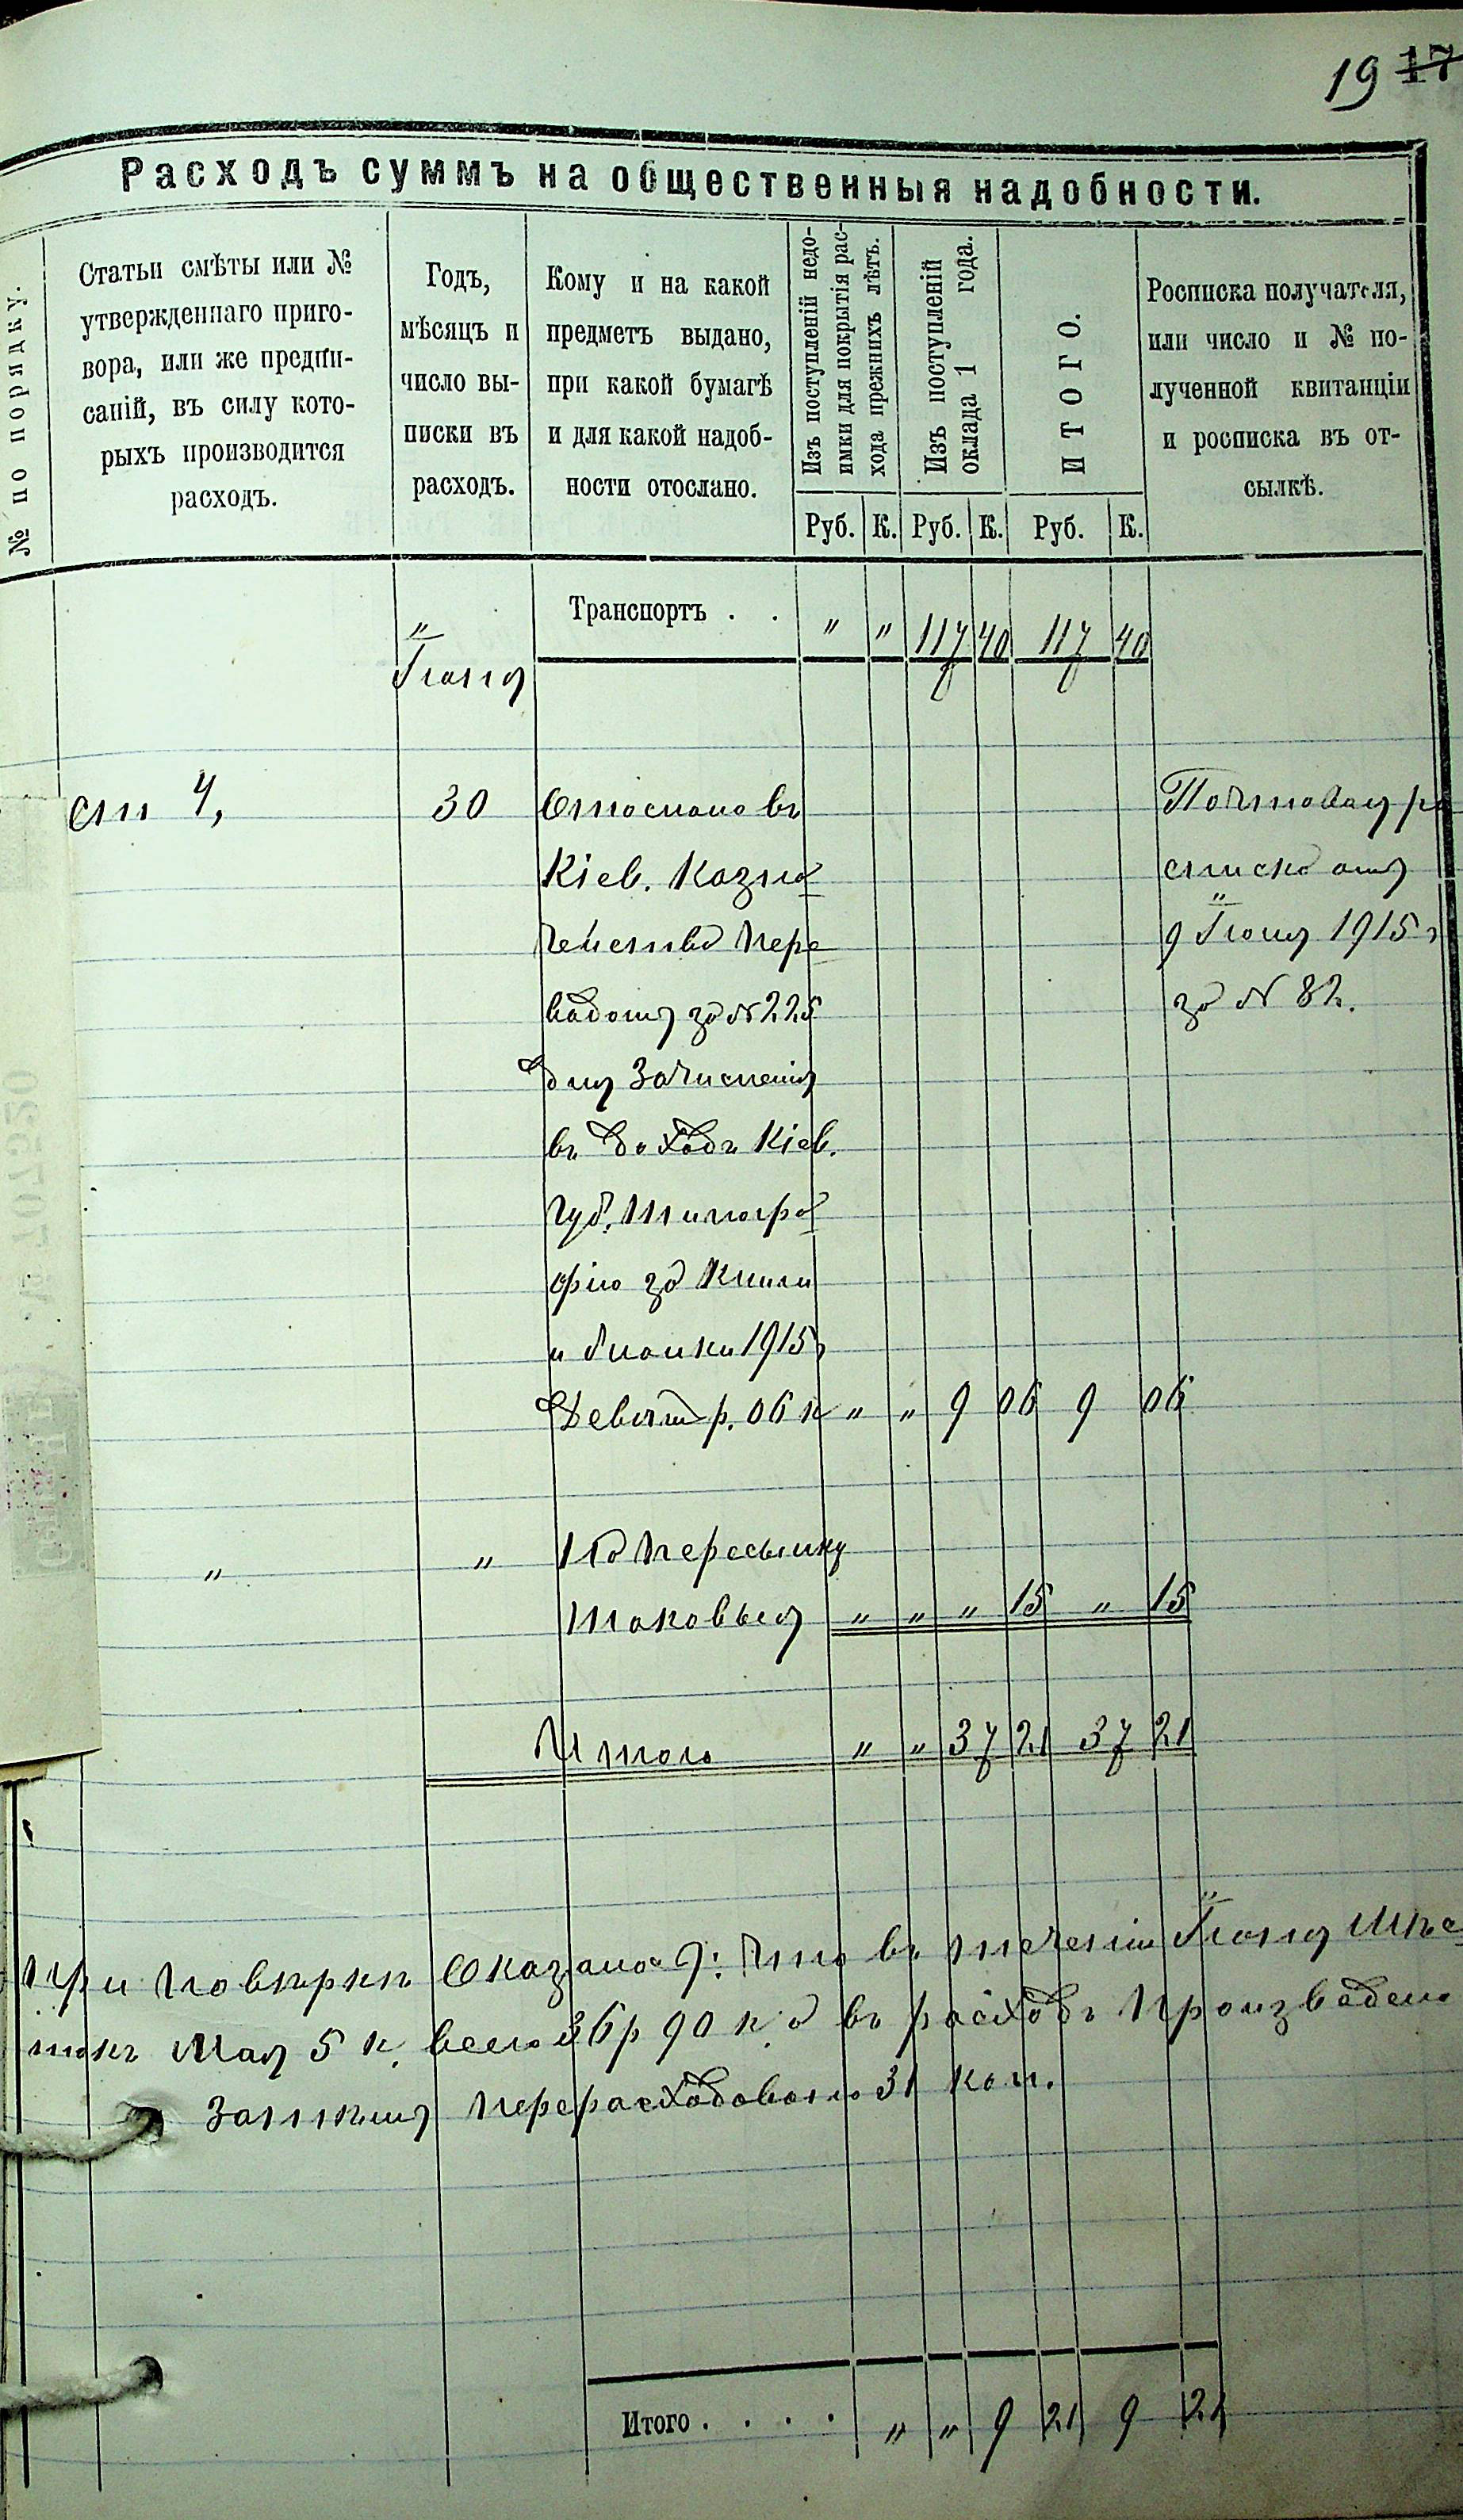 19 17
Расходъ суммъ на общественныя надобности.
№ по порядку.
Статьи смѣты или №
утвержденнаго приго-
вора, или же предпи-
саній, въ силу кото-
рыхъ производится
расходъ.
Годъ,
мѣсяцъ и
число вы-
писки въ
расходъ.
Кому и на какой
предметъ выдано,
при какой бумагѣ
и для какой надоб-
ности отослано.
Изъ поступленій недо-
имки для покрытія рас-
хода прежнихъ лѣтъ.
Изъ поступленій
оклада 1 года.
ИТОГО.
Росписка получателя,
или число и № по-
лученной квитанціи
и росписка въ от-
сылкѣ.
Руб. К. Руб. К. Руб. К.
Транспортъ . . " " 117 40 117 40
Іюня
ст 4, 30 Отослано въ Почтовая ро
Кіев. Казна списка отъ
чейство пере 9 Іюня 1915 г
водомъ за № 225 за № 82.
для Зачисленія
въ доходъ Кіев.
Губ. типогра
фію за Книги
и бланки 1915 г
Девять р. 06 к " " 9 06 9 06
" " На пересылку
таковыхъ " " " 15 " 15
Итого " " 37 21 37 21
при повѣркѣ Оказалось: что въ теченіи Іюня
токъ Мая 5 к. всего 36 р 90 к. а въ расходъ произведено
Затѣмъ перерасходовано 31 коп.
Итого . . . . " " 9 21 9 21